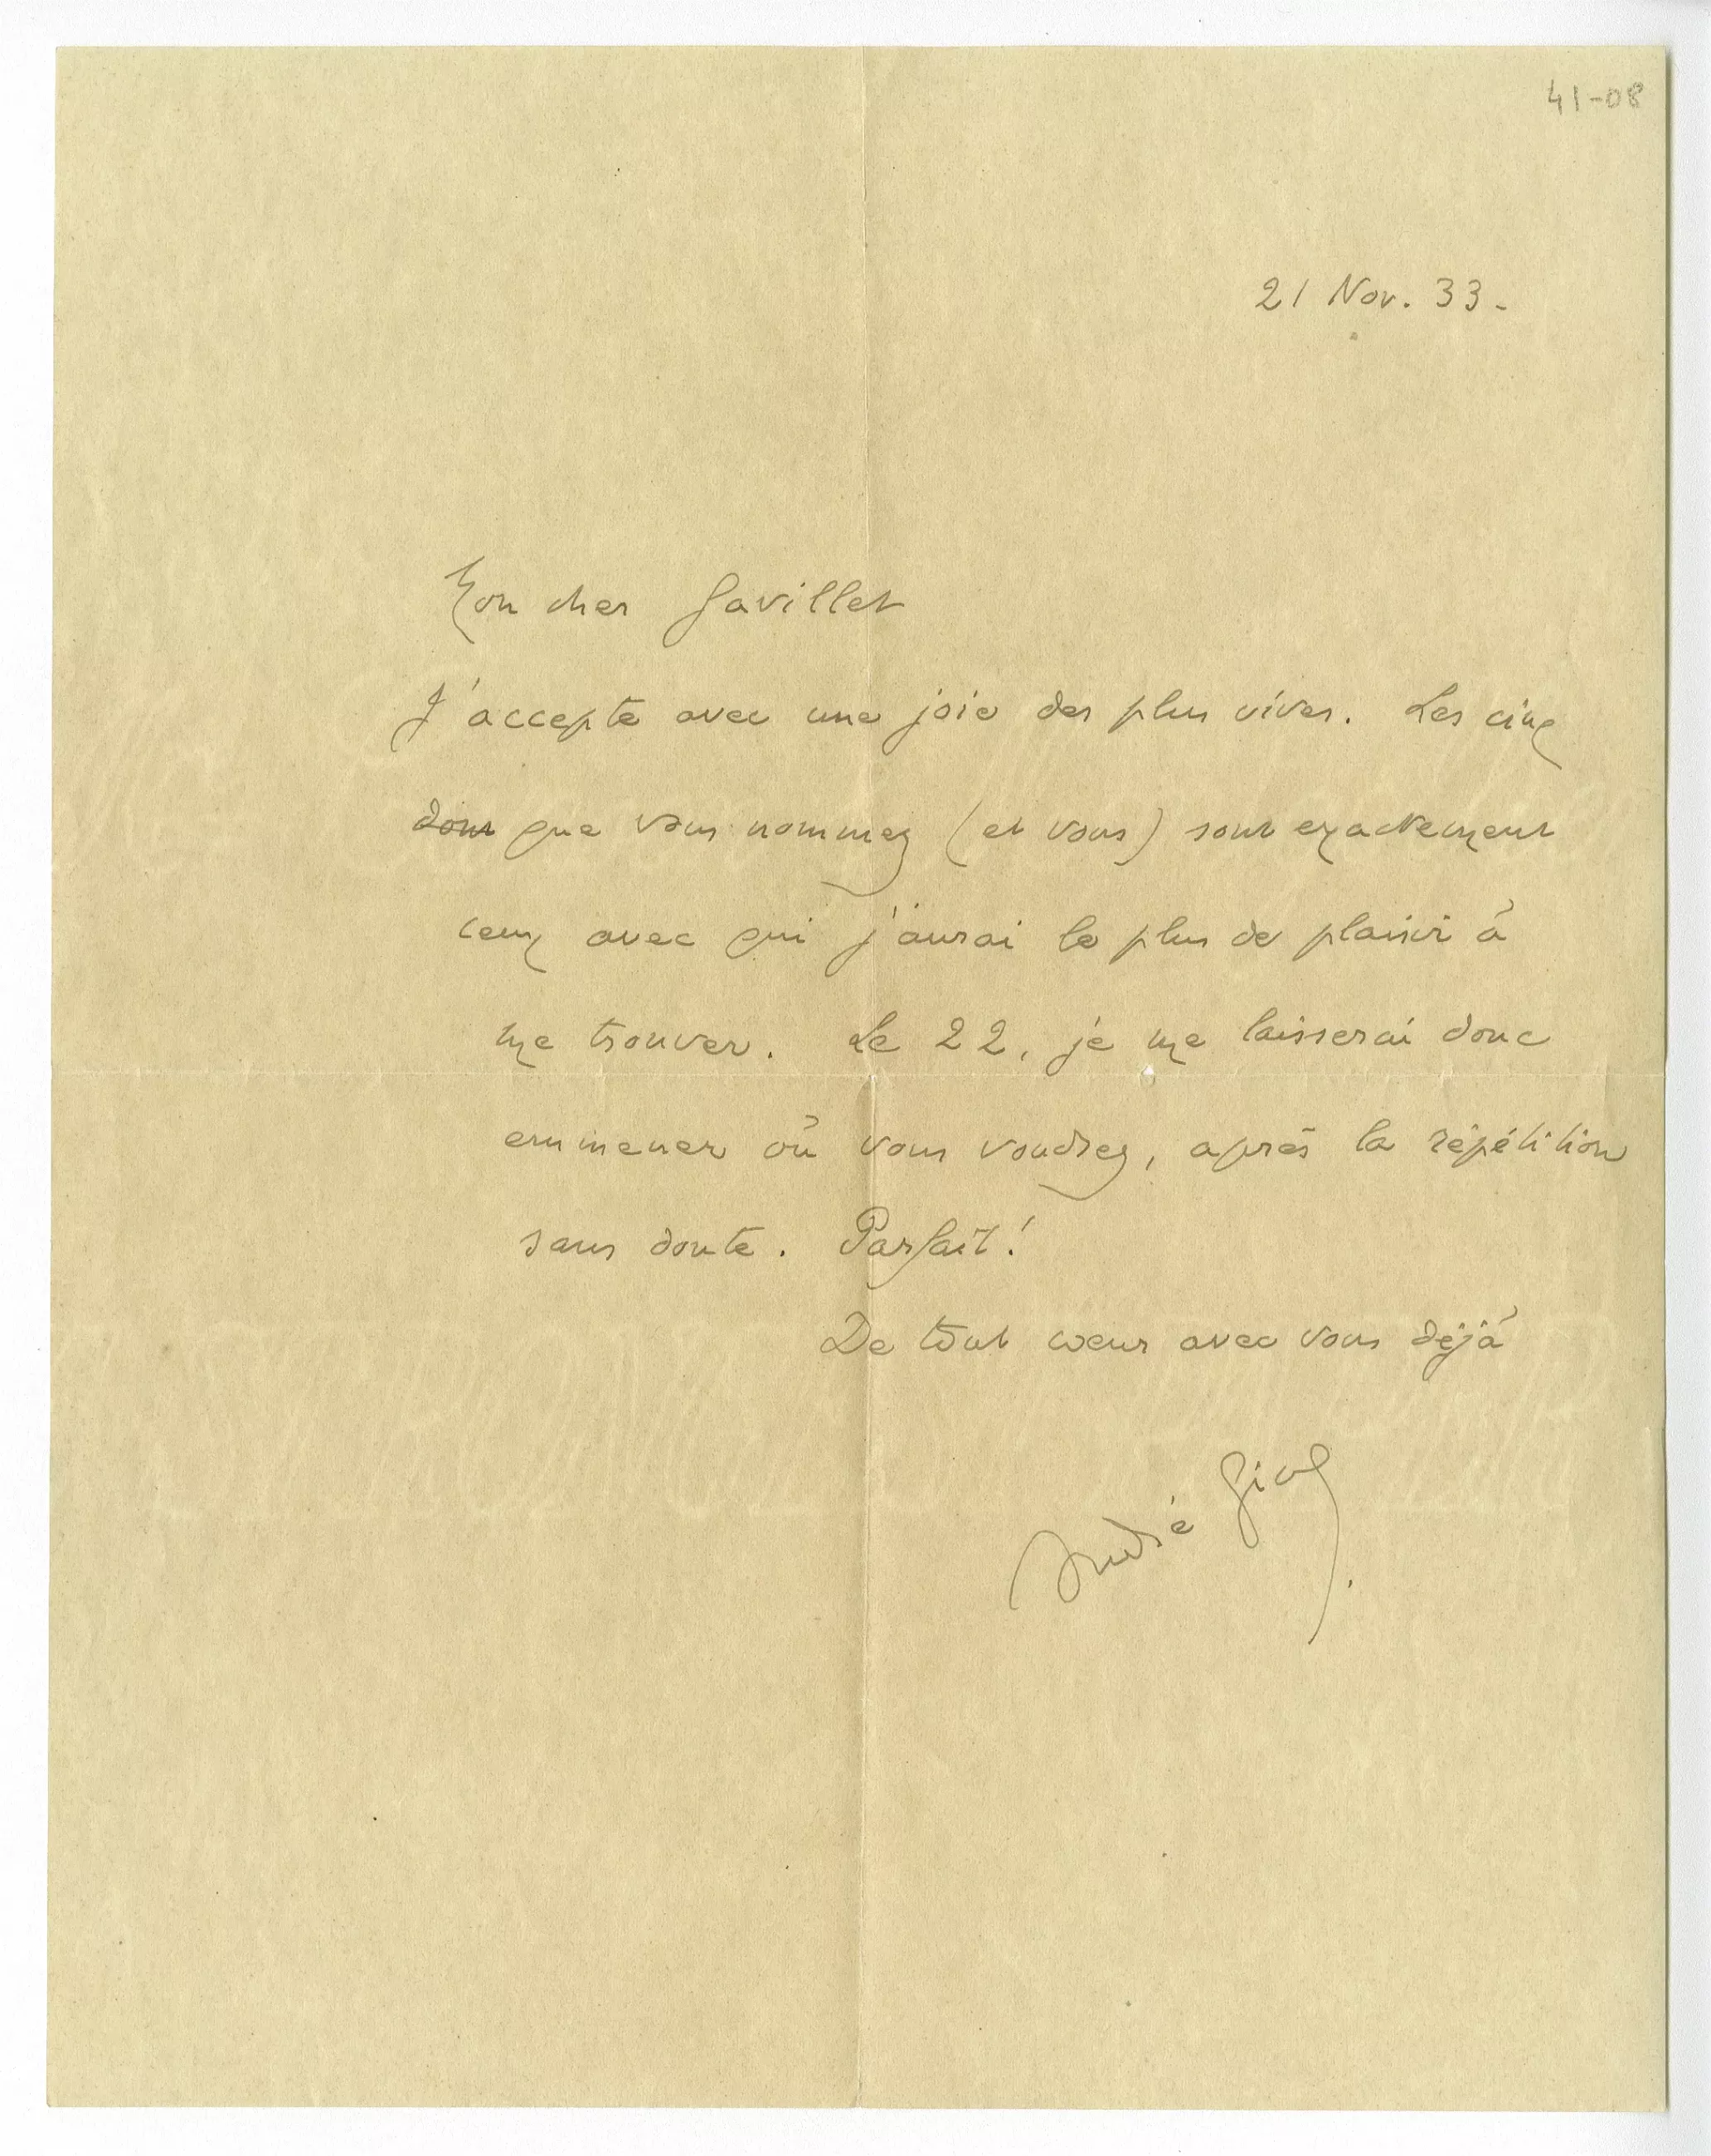 41-08
21 Nov. 33 -
Mon cher Gavillet
J'accepte avec une joie des plus vives. Les cinq
dont que vous nommez (et vous) sont exactement
ceux avec qui j'aurai le plus de plaisir à
me trouver. Le 22, je me laisserai donc
emmener où vous voudrez, après la répétition
sans doute. Parfait!
De tout cœur avec vous déjà
André Gide.